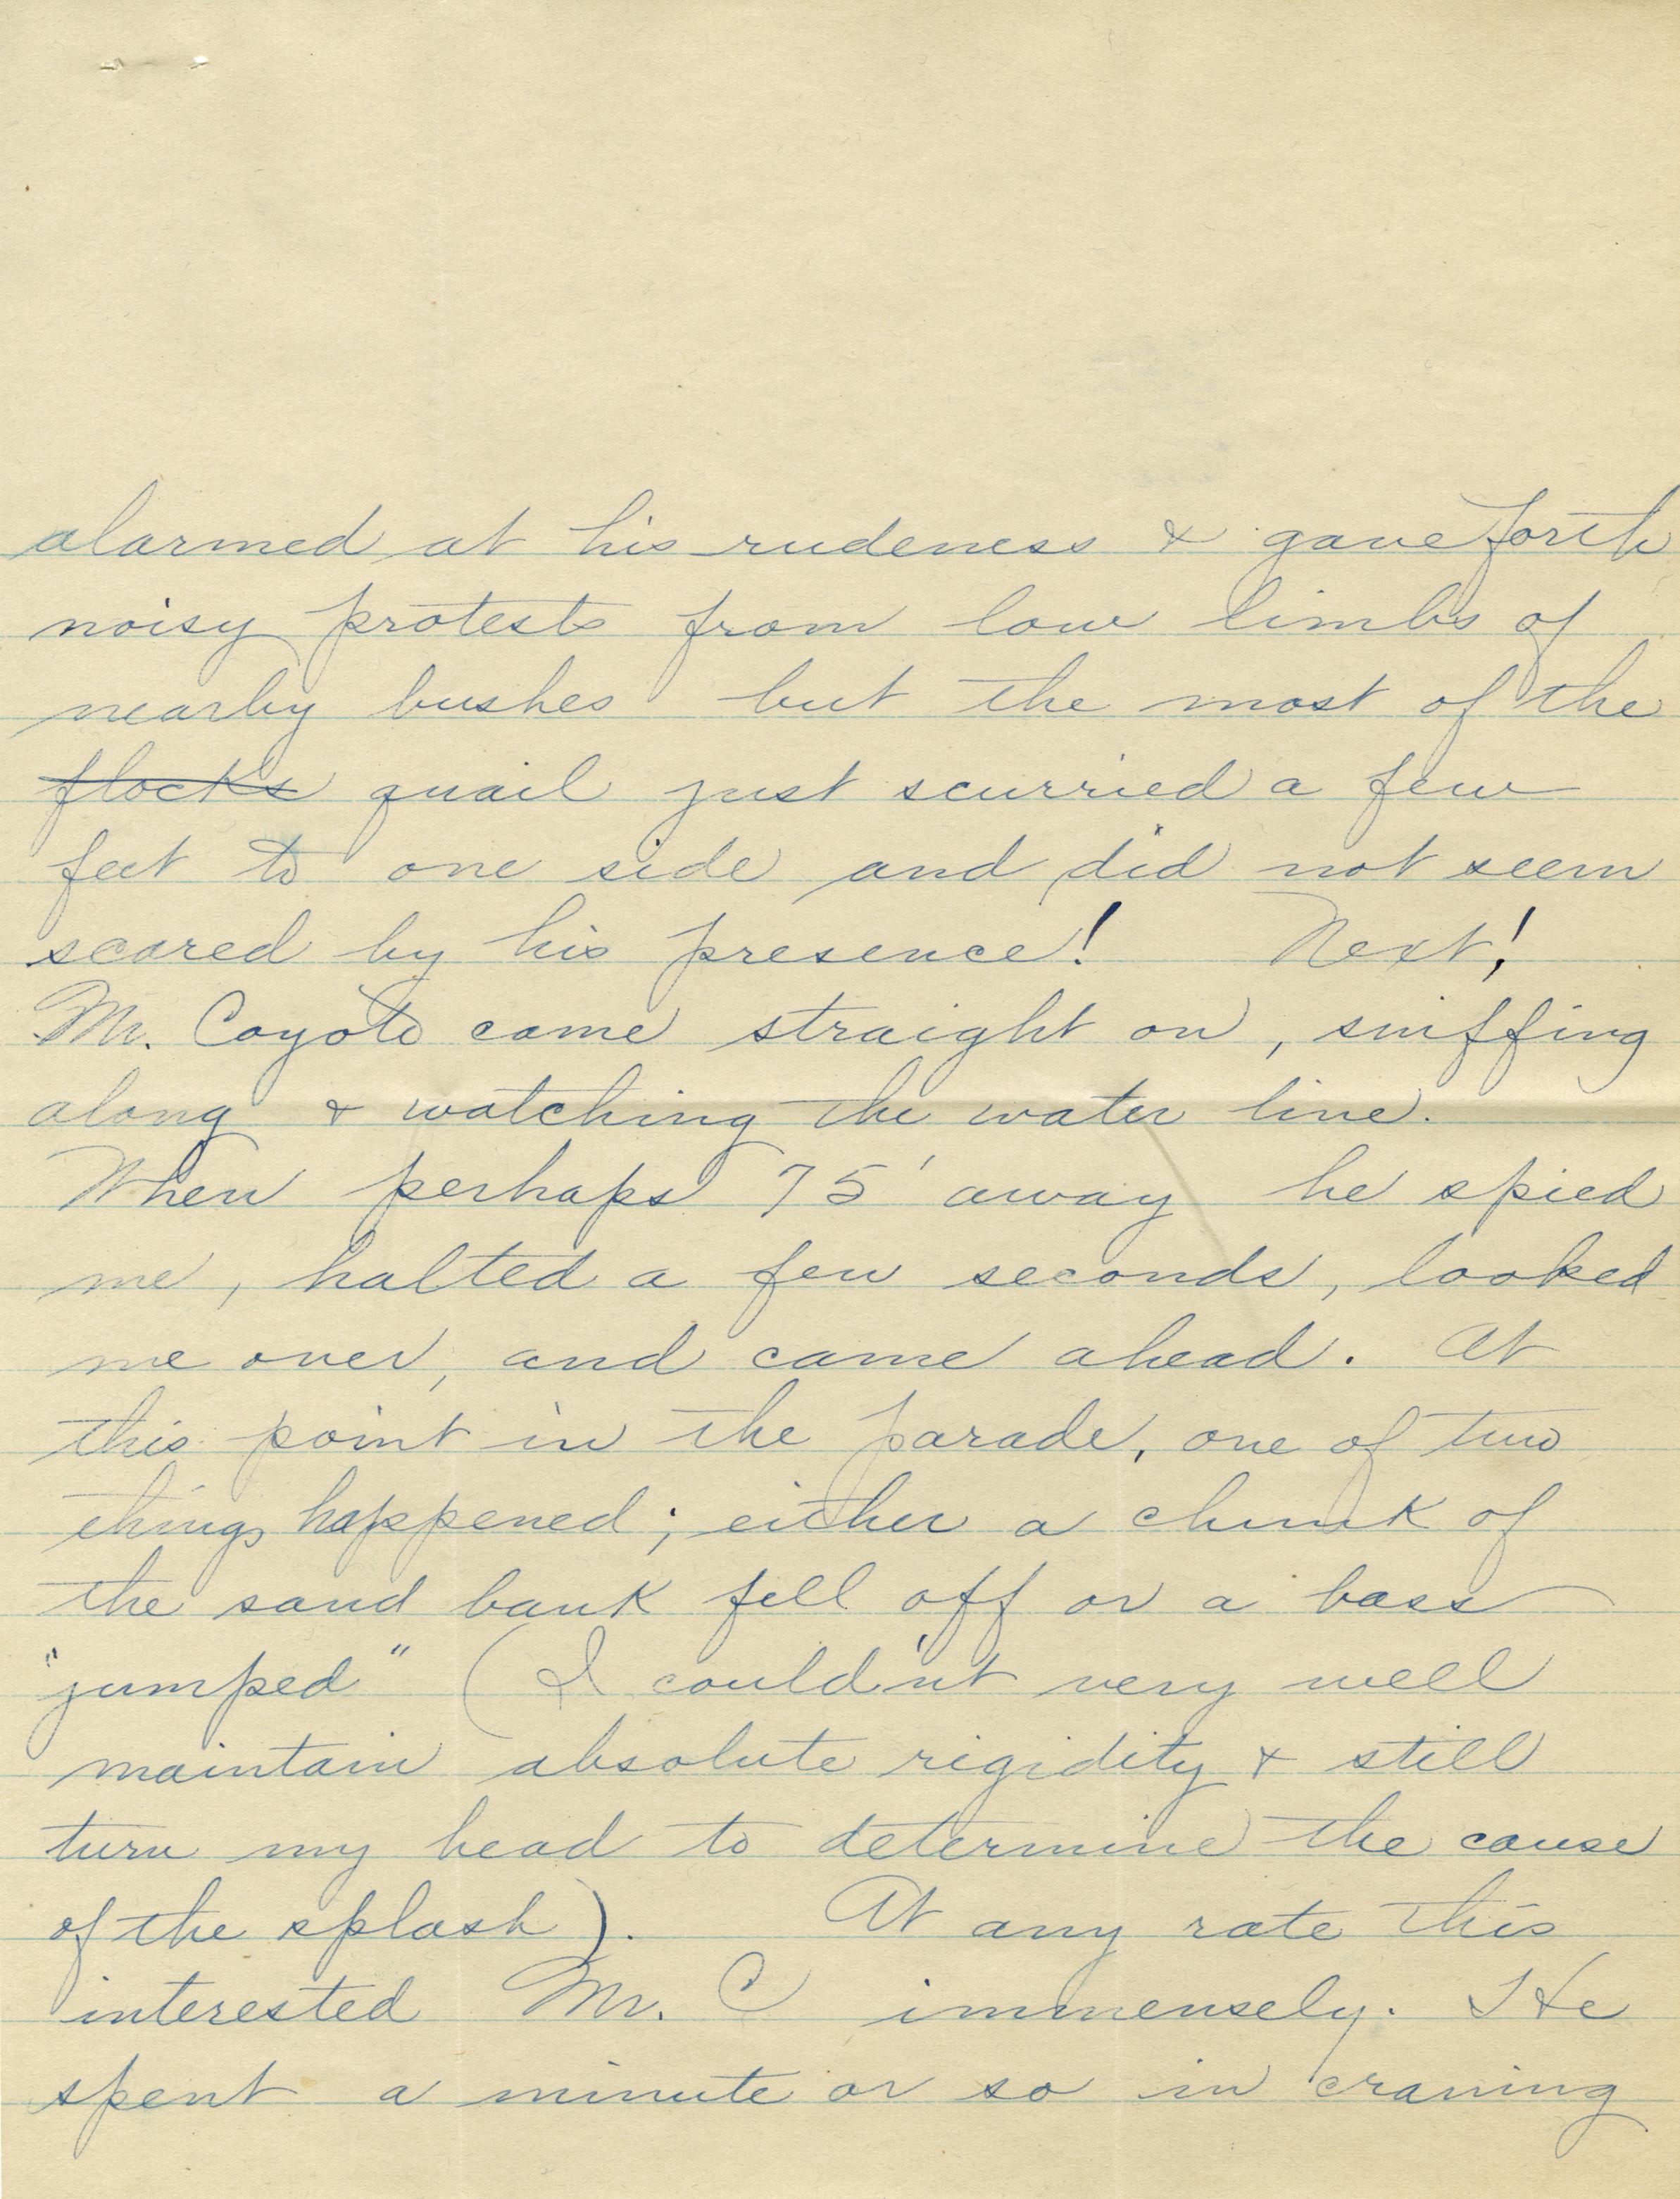 alarmed at his rudeness & gave forth
noisy protests from low limbs of
nearby bushes but the most of the
flocks quail just scurried a few
feet to one side and did not seem
scared by his presence! Next!
Mr. Coyote came straight on, sniffing
along & watching the water line.
When perhaps 75' away he spied
me, halted a few seconds, looked
me over, and came ahead. At
this point in the parade, one of two
things happened; either a chunk of
the sand bank fell off or a bass
"jumped" (I could'nt very well
maintain absolute rigidity & still
turn my head to determine the cause
of the splash). At any rate this
interested Mr. C immensely. He
spent a minute or so in craning